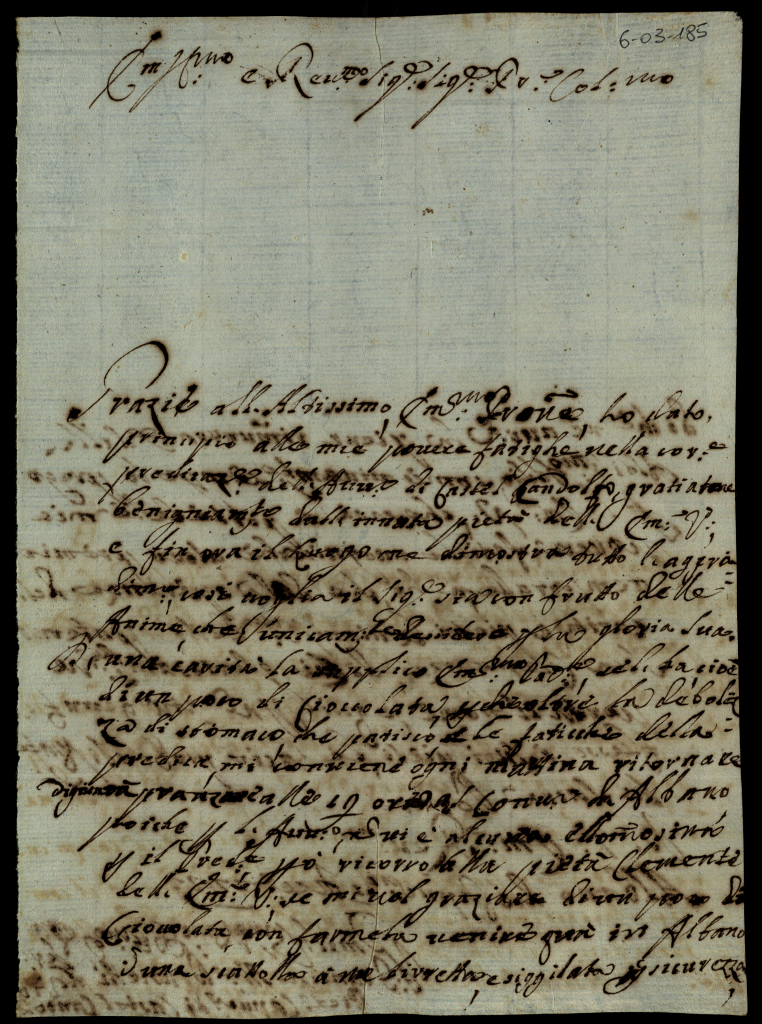 6-03-185
Em.mo e Reu.mo Sig.r Sig.r Pr.e Col.mo
Grazie all. Altissimo, Em.mo Prone, ho dato
principio alle mie pouere fatighe nella cor.e
predicaz.e dell. Auu.o di Castel Gandolfo, gratiatone
benignam.te dall innata pietà dell. Em.a V.,
e fin ora il Luogo me dimostra tutto l. aggra-
dim.o così uoglia il Sig.e sia con frutto delle
Anime che unicam.te desidero p la gloria Sua.
Di una carità la supplico Em.mo
di un poco di Cioccolata, p la debolez
za di stomaco che patisco e le fatiche della
predica, mi conuiene ogni mattina ritornare
digiuno a pranzare alle 19 ore al Conu.o di Albano
poiche p l. Auu.o non ui è alcuna ellemosina
p il Pred.e però ricorro alla pietà Clemente
dell. Em.a V. se mi uol graziare di un poco di
Cioccolata con farmela uenire qua in Albano
una scattola a me diretta, e siggilata p sicurezza